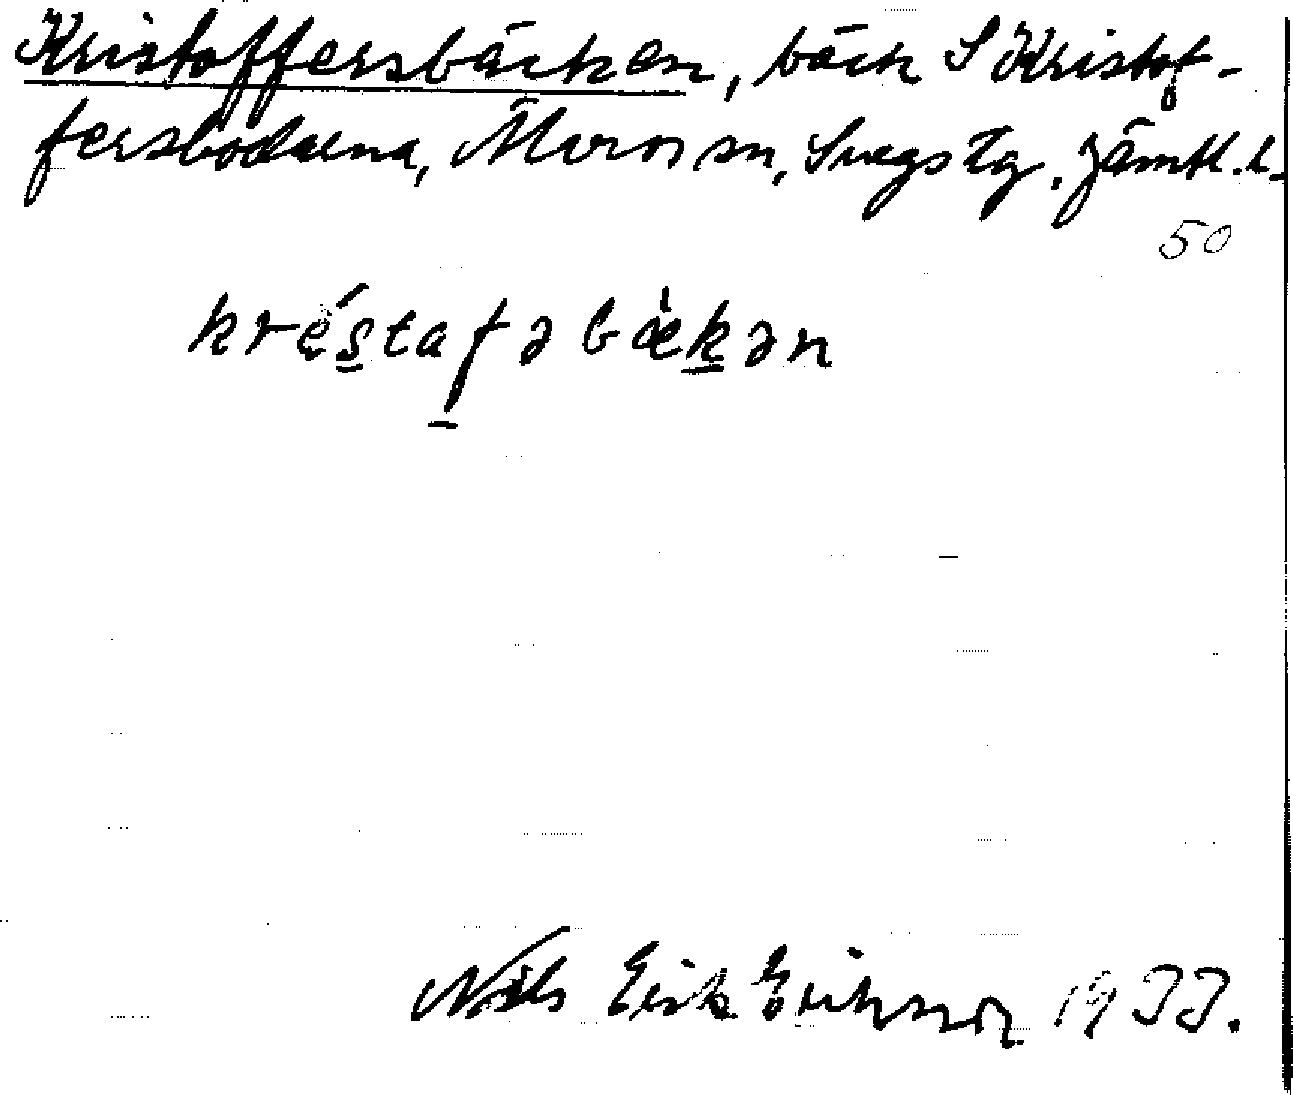 Kristoffersbäcken, bäck S Kristof-
fersbodarna, Älvros sn, Svegs tg, Jämtl. l.
50
kréstafəbæ̀kən
Nils Erik Eriksson 1933.